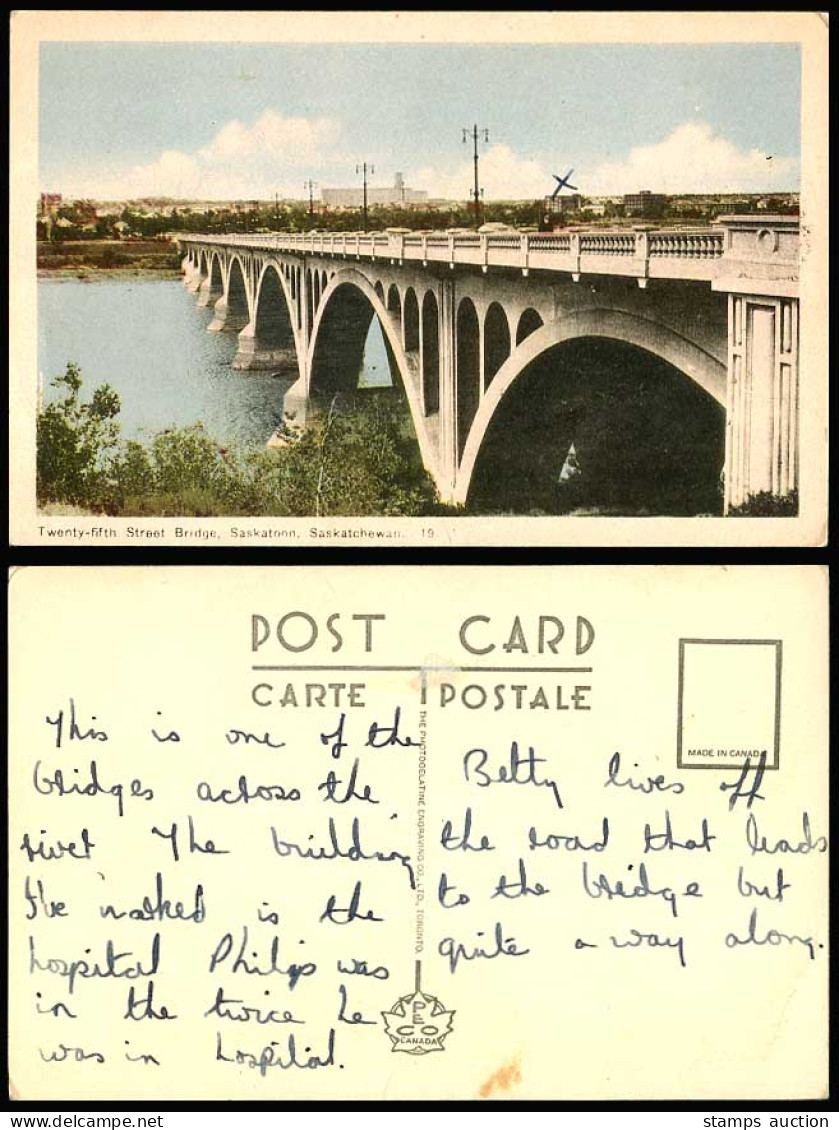 Twenty-fifth Street Bridge, Saskatoon, Saskatchewan. 19.
POST CARD
CARTE POSTALE
MADE IN CANADA
THE PHOTOGELATINE ENGRAVING CO., LTD., TORONTO.
This is one of the
bridges across the
river The building
I've marked is the
hospital Philip was
in the twice he
was in hospital.
PECO
CANADA
Betty lives off
the road that leads
to the bridge but
quite a way along.
stamps auction